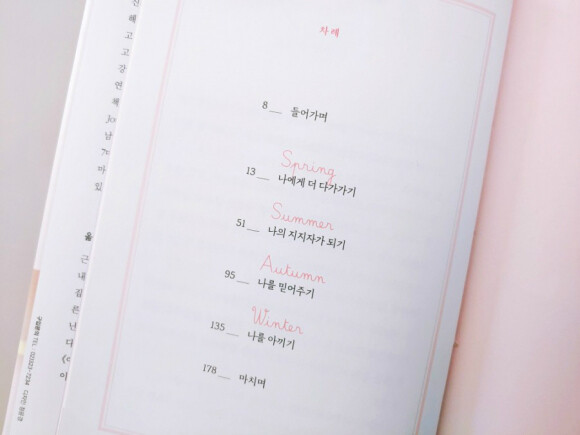 차례
8__ 들어가며
Spring
13__ 나에게 더 다가가기
Summer
51__ 나의 지지자가 되기
Autumn
95__ 나를 믿어주기
Winter
135__ 나를 아끼기
178__ 마치며
해
고
고
강
연
해
남
마
있
근
내
깊
은
난
다
이